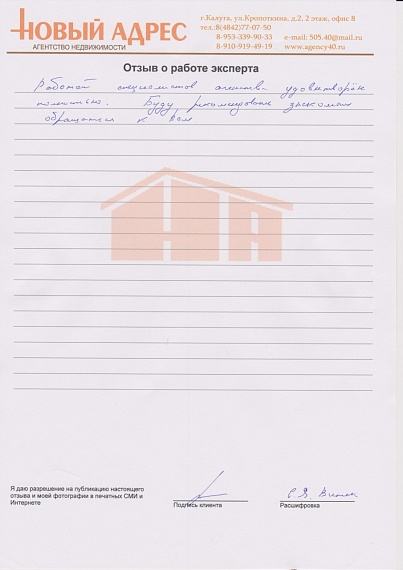 НОВЫЙ АДРЕС
АГЕНТСТВО НЕДВИЖИМОСТИ
г.Калуга, ул.Кропоткина, д.2, 2 этаж, офис 8
тел.:8(4842)77-07-50
8-953-339-90-33 e-mail: 505.40@mail.ru
8-910-919-49-19 www.agency40.ru
Отзыв о работе эксперта
Работой специалистов агентства удовлетворён
полностью. Буду рекомендовать знакомым
обращаться к Вам
НА
Я даю разрешение на публикацию настоящего
отзыва и моей фотографии в печатных СМИ и
Интернете
Подпись клиента
Расшифровка